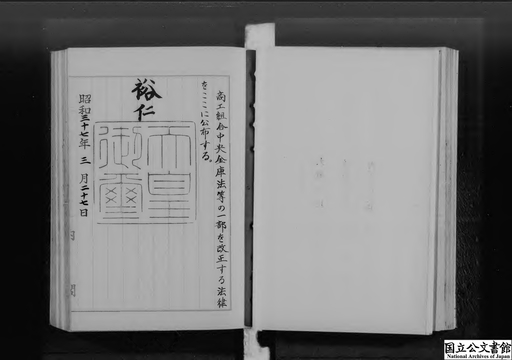 商工組合中央金庫法等の一部を改正する法律
をここに公布する。
裕仁
天皇
御璽
昭和三十七年三月二十七日
国立公文書館
National Archives of Japan